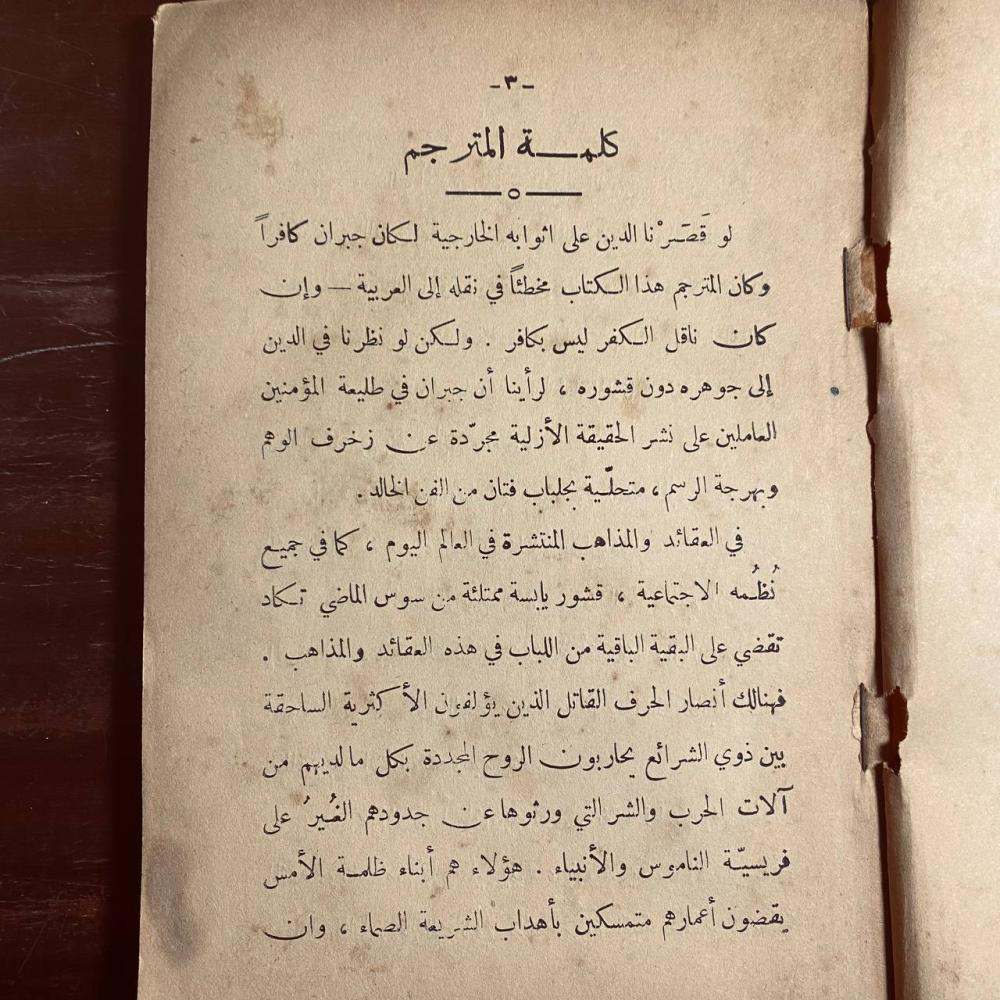 -٣-
كلمة المترجم
لو قَصَرْنا الدين على اثوابه الخارجية لكان جبران كافراً
وكان المترجم هذا الكتاب مخطئاً في نقله إلى العربية — وإن
كان ناقل الكفر ليس بكافر . ولكن لو نظرنا في الدين
إلى جوهره دون قشوره ، لرأينا أن جبران في طليعة المؤمنين
العاملين على نشر الحقيقة الأزلية مجرّدة عن زخرف الوهم
وبهرجة الرسم ، متحلّية بجلباب فتان من الفن الخالد .
في العقائد والمذاهب المنتشرة في العالم اليوم ، كما في جميع
نُظُمه الاجتماعية ، قشور يابسة ممتلئة من سوس الماضي تكاد
تقضي على البقية الباقية من اللباب في هذه العقائد والمذاهب .
فهنالك أنصار الحرف القاتل الذين يؤلفون الأكثرية الساحقة
بين ذوي الشرائع يحاربون الروح المجددة بكل ما لديهم من
آلات الحرب والشر التي ورثوها عن جدودهم الغُيرُ على
فريسيّة الناموس والأنبياء . هؤلاء هم أبناء ظلمة الأمس
يقضون أعمارهم متمسكين بأهداب الشريعة الصماء ، وان